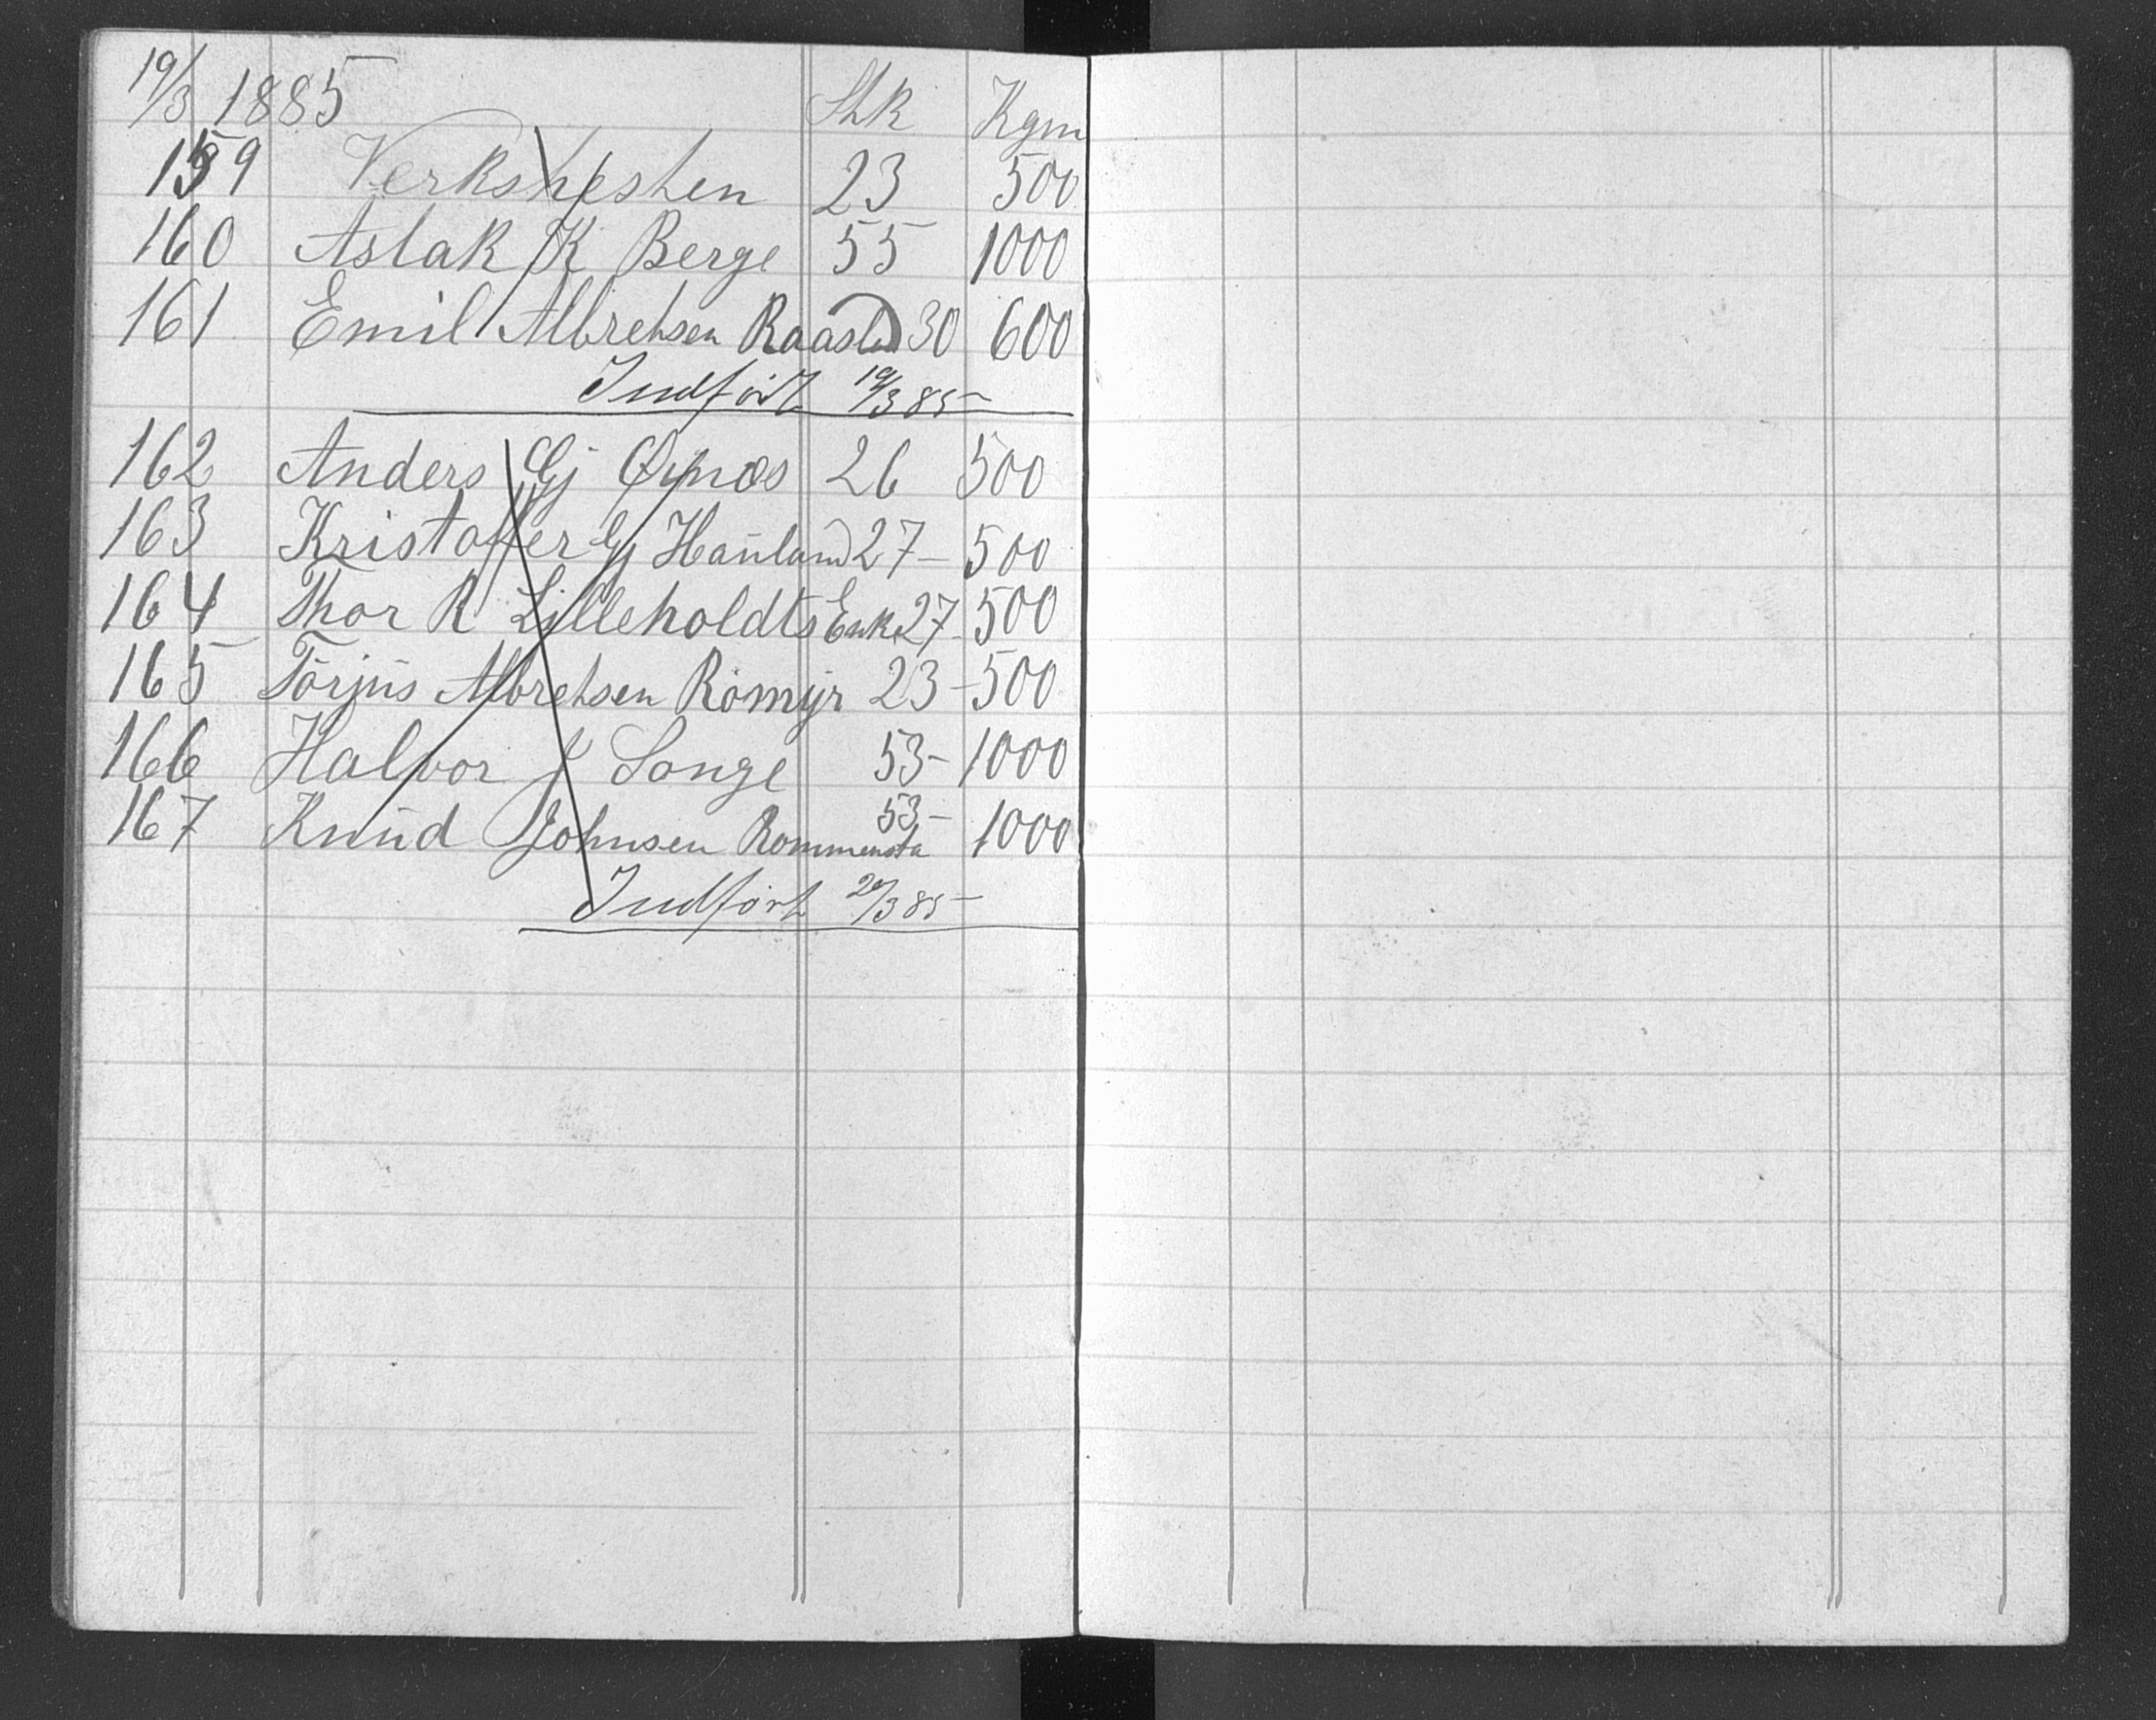 19/3 1885 Stk Kgm
159 Verkshesten 23 500
160 Aslak K Berge 55 1000
161 Emil Albretsen Raasta 30 600
Indført 19/3 85
162 Anders Gj Øynæs 26 500
163 Kristoffer Gj Haũland 27 - 500
164 Thor R Lilleholdts Enke 27 - 500
165 Torjũs Albretsen Romyr 23 - 500
166 Halvor J Songe 53 - 1000
167 Knũd Johnsen Rommensta 53 - 1000
Indført 20/3 85